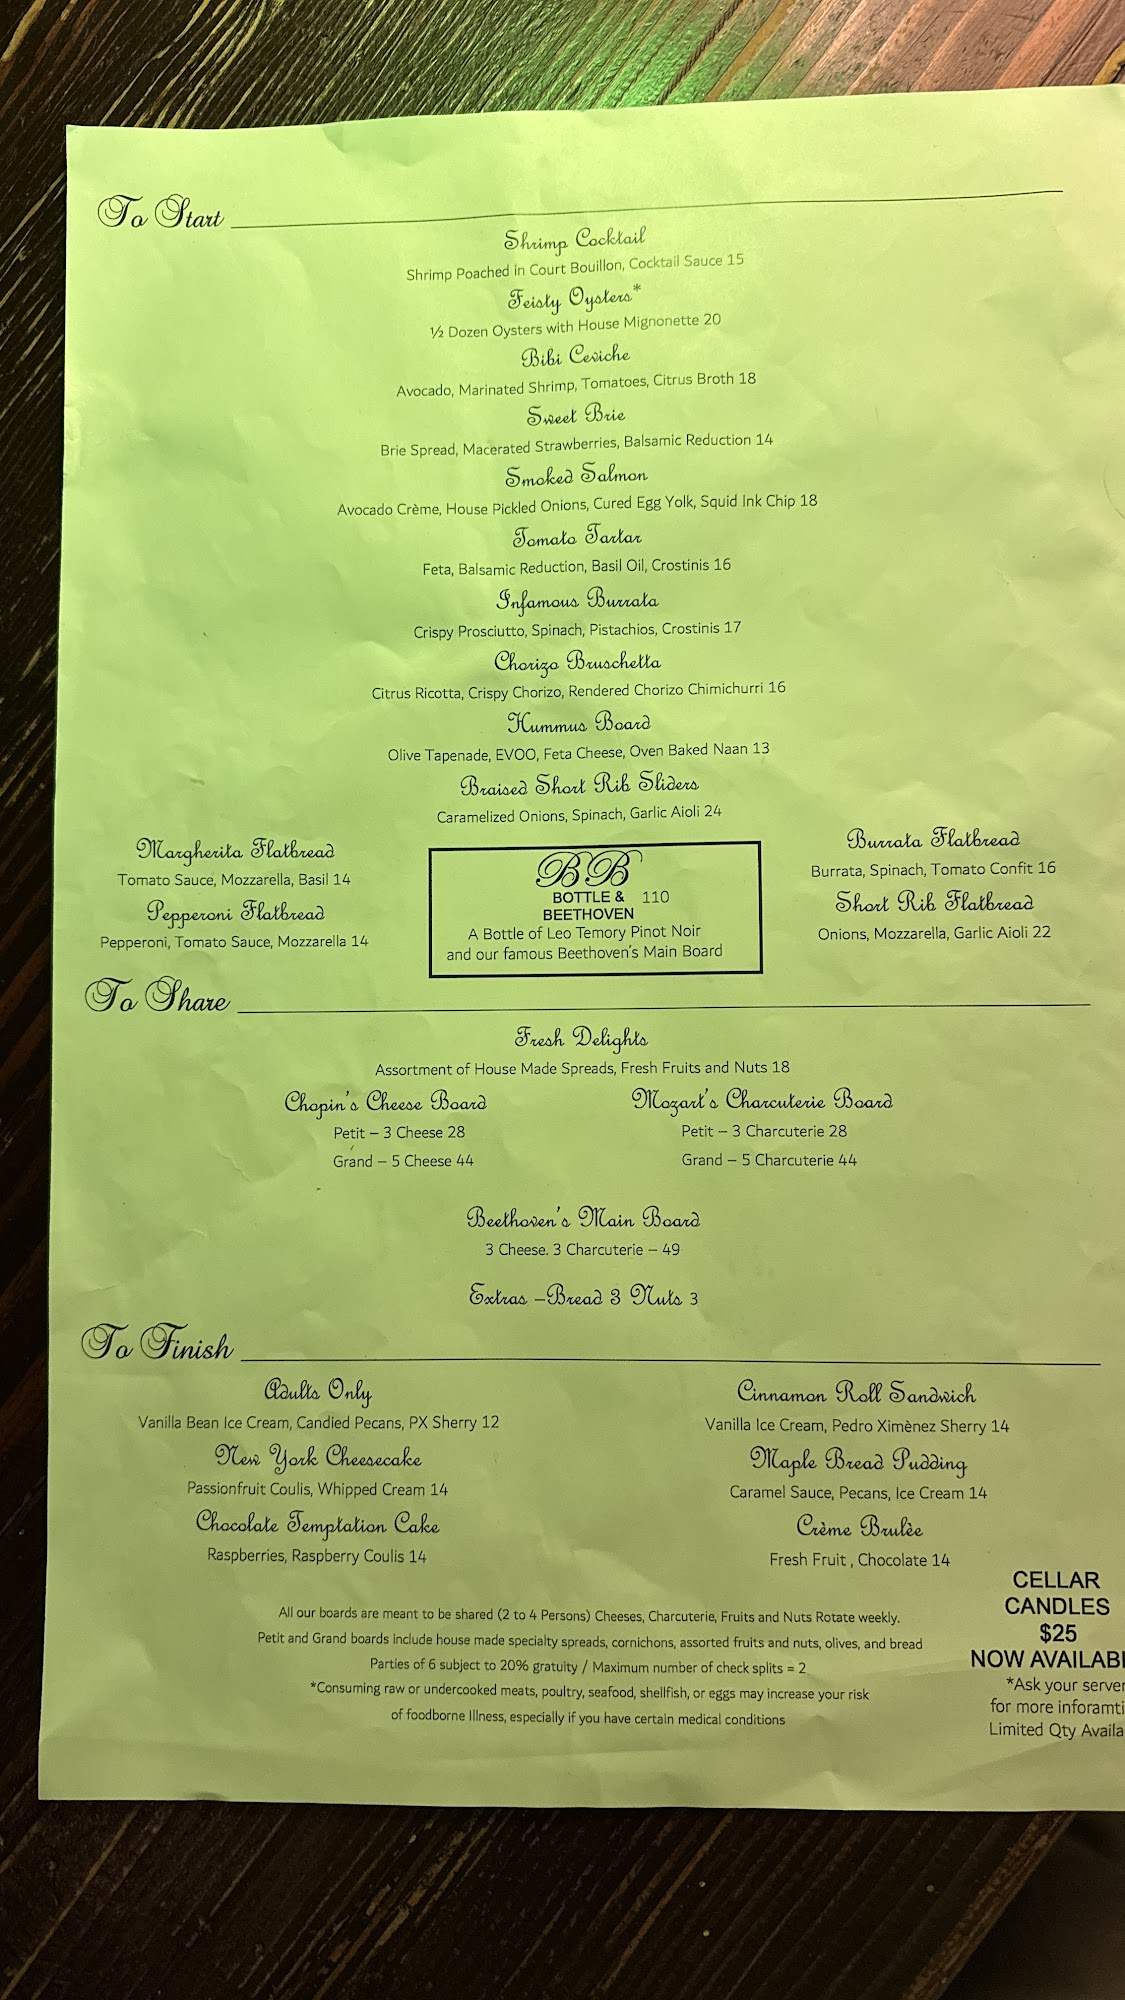 To Start
Shrimp Cocktail
Shrimp Poached in Court Bouillon, Cocktail Sauce 15
Feisty Oysters*
½ Dozen Oysters with House Mignonette 20
Bibi Ceviche
Avocado, Marinated Shrimp, Tomatoes, Citrus Broth 18
Sweet Brie
Brie Spread, Macerated Strawberries, Balsamic Reduction 14
Smoked Salmon
Avocado Crème, House Pickled Onions, Cured Egg Yolk, Squid Ink Chip 18
Tomato Tartar
Feta, Balsamic Reduction, Basil Oil, Crostinis 16
Infamous Burrata
Crispy Prosciutto, Spinach, Pistachios, Crostinis 17
Chorizo Bruschetta
Citrus Ricotta, Crispy Chorizo, Rendered Chorizo Chimichurri 16
Hummus Board
Olive Tapenade, EVOO, Feta Cheese, Oven Baked Naan 13
Braised Short Rib Sliders
Caramelized Onions, Spinach, Garlic Aioli 24
Margherita Flatbread
Tomato Sauce, Mozzarella, Basil 14
Pepperoni Flatbread
Pepperoni, Tomato Sauce, Mozzarella 14
BB
BOTTLE & 110
BEETHOVEN
A Bottle of Leo Temory Pinot Noir
and our famous Beethoven's Main Board
Burrata Flatbread
Burrata, Spinach, Tomato Confit 16
Short Rib Flatbread
Onions, Mozzarella, Garlic Aioli 22
To Share
Fresh Delights
Assortment of House Made Spreads, Fresh Fruits and Nuts 18
Chopin's Cheese Board
Petit – 3 Cheese 28
Grand – 5 Cheese 44
Mozart's Charcuterie Board
Petit – 3 Charcuterie 28
Grand – 5 Charcuterie 44
Beethoven's Main Board
3 Cheese. 3 Charcuterie – 49
Extras –Bread 3 Nuts 3
To Finish
Adults Only
Vanilla Bean Ice Cream, Candied Pecans, PX Sherry 12
New York Cheesecake
Passionfruit Coulis, Whipped Cream 14
Chocolate Temptation Cake
Raspberries, Raspberry Coulis 14
Cinnamon Roll Sandwich
Vanilla Ice Cream, Pedro Ximènez Sherry 14
Maple Bread Pudding
Caramel Sauce, Pecans, Ice Cream 14
Crème Brulèe
Fresh Fruit , Chocolate 14
All our boards are meant to be shared (2 to 4 Persons) Cheeses, Charcuterie, Fruits and Nuts Rotate weekly.
Petit and Grand boards include house made specialty spreads, cornichons, assorted fruits and nuts, olives, and bread
Parties of 6 subject to 20% gratuity / Maximum number of check splits = 2
*Consuming raw or undercooked meats, poultry, seafood, shellfish, or eggs may increase your risk
of foodborne Illness, especially if you have certain medical conditions
CELLAR
CANDLES
$25
NOW AVAILABL
*Ask your server
for more inforamti
Limited Qty Availa